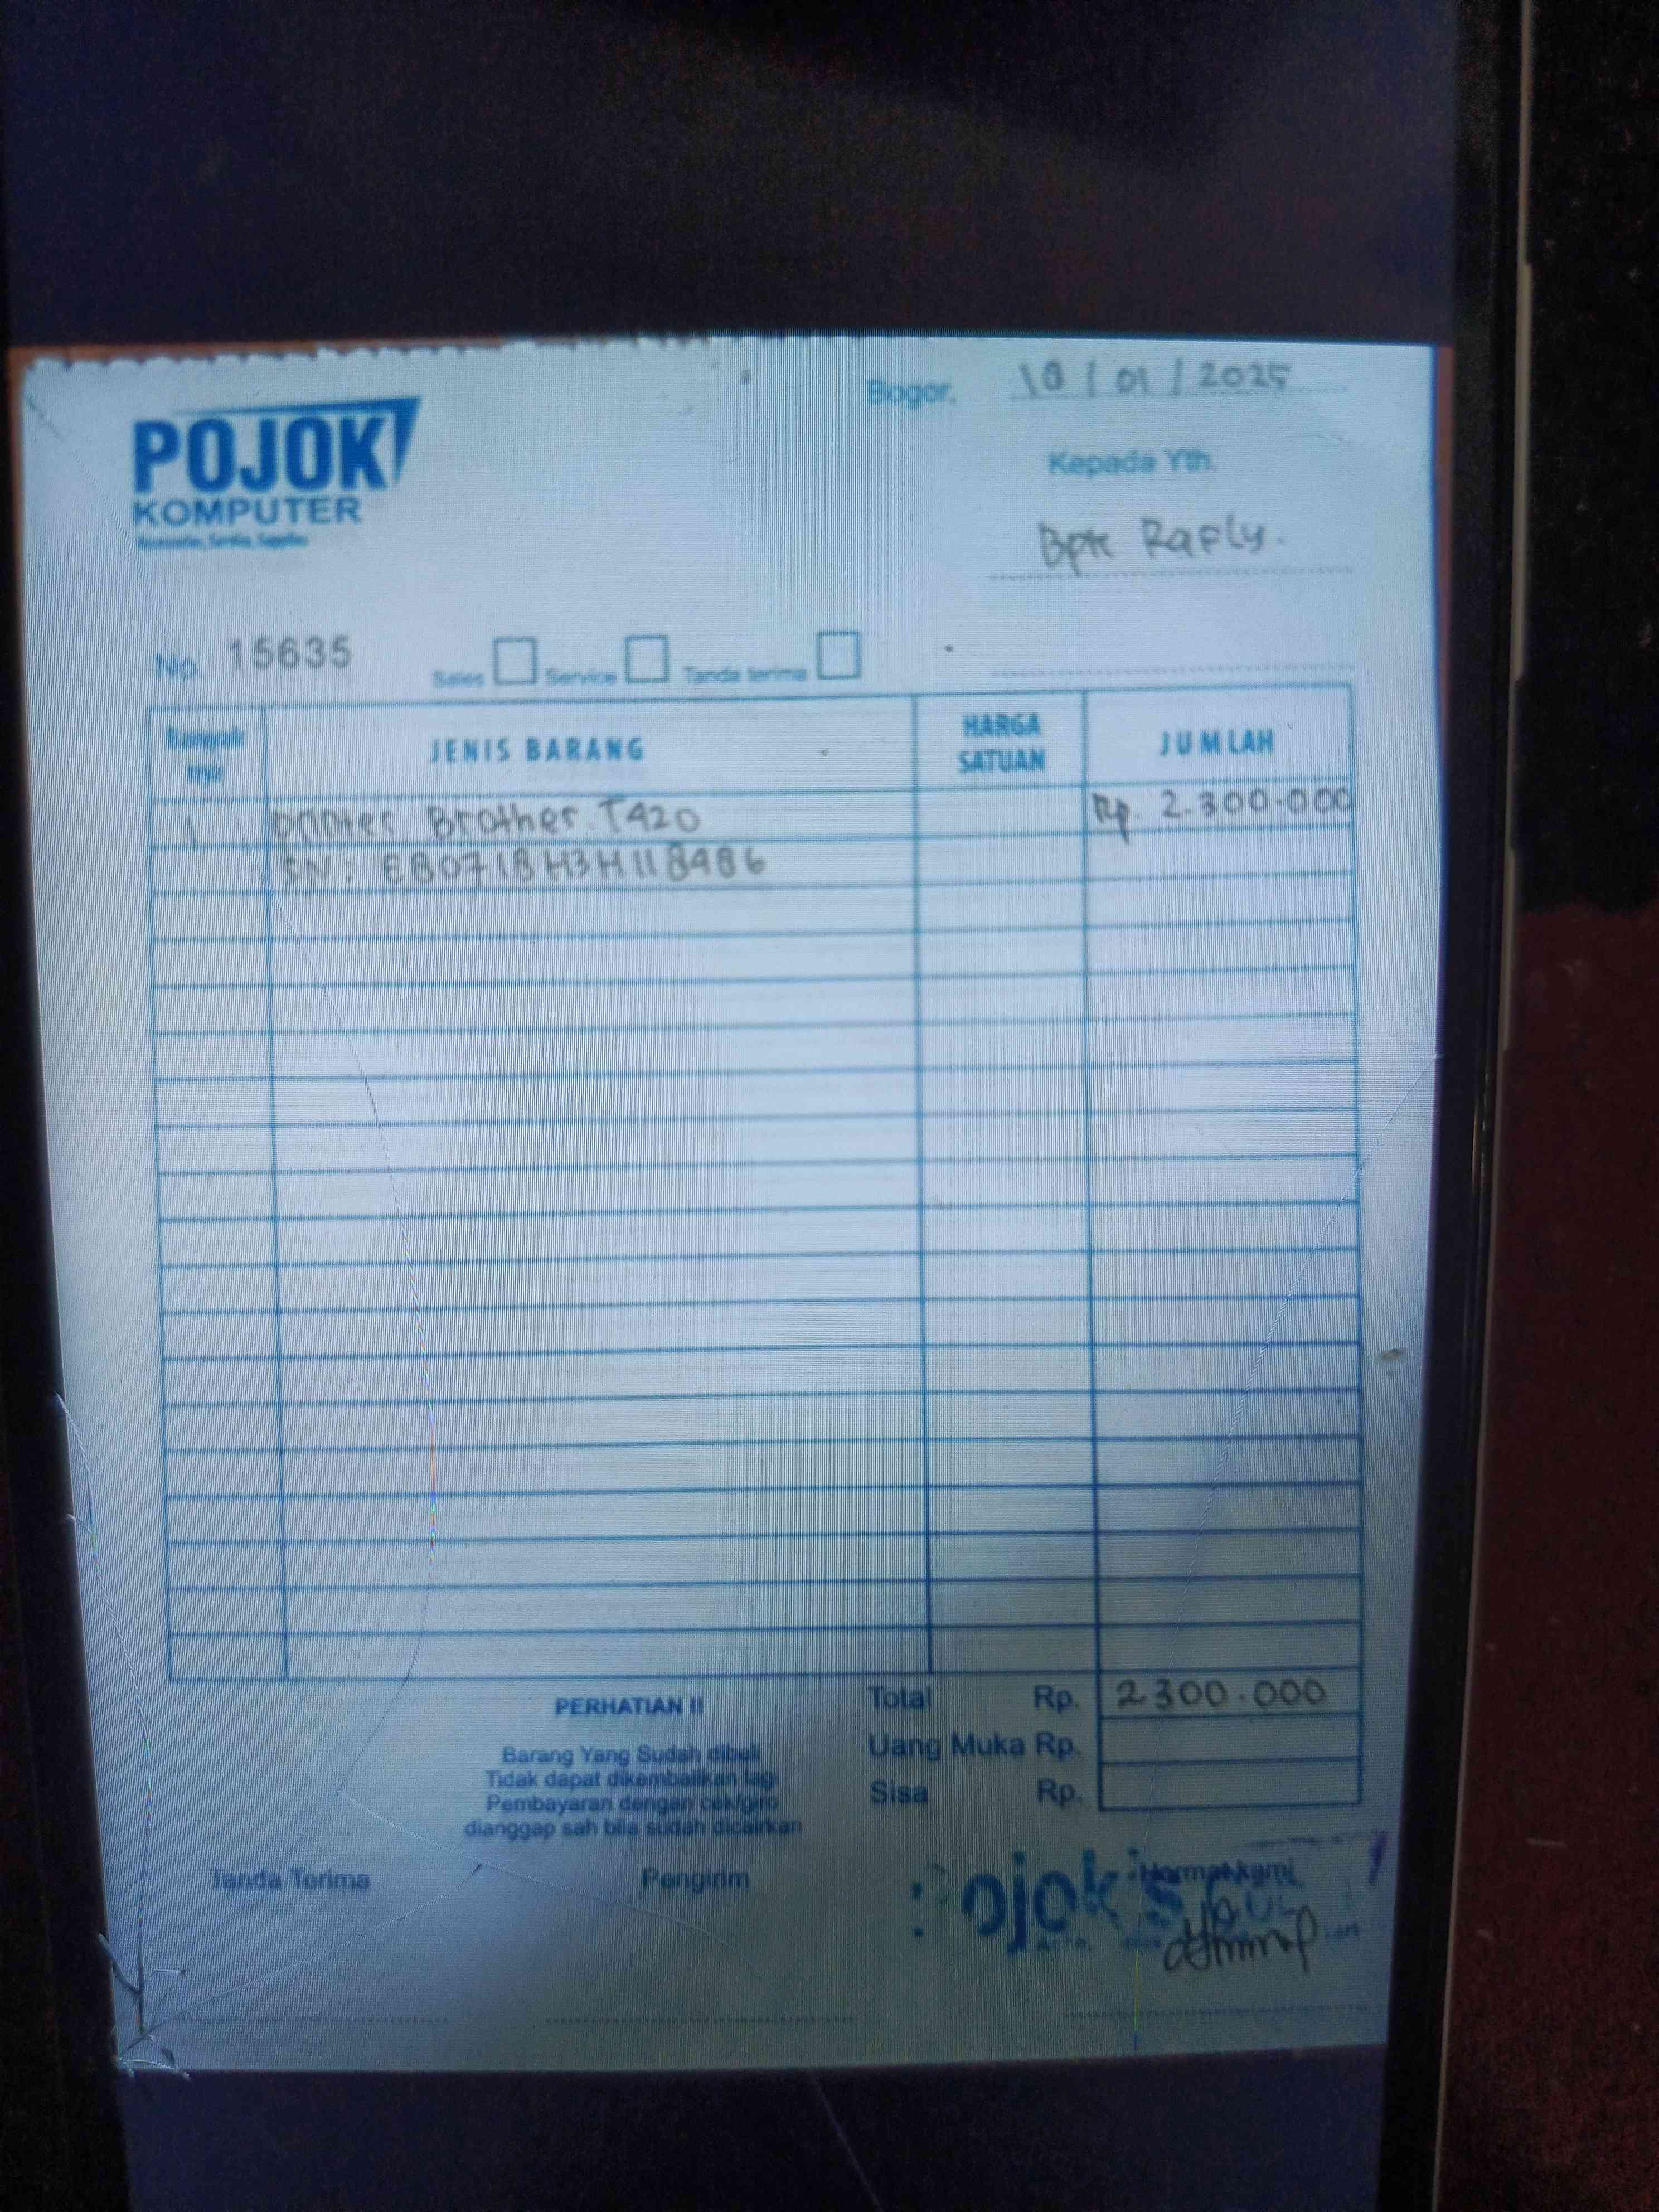 Bogor, 18/01/2025
POJOK
KOMPUTER
Accessories, Service, Supplies
Kepada Yth.
Bpk Rafly.
No. 15635
Sales Service Tanda terima
Banyak nya JENIS BARANG HARGA SATUAN JUMLAH
1 printer Brother T420 Rp. 2.300.000
SN: E80718H3H118486
PERHATIAN !!
Barang Yang Sudah dibeli
Tidak dapat dikembalikan lagi
Pembayaran dengan cek/giro
dianggap sah bila sudah dicairkan
Total Rp. 2300.000
Uang Muka Rp.
Sisa Rp.
Tanda Terima Pengirim Hormat kami